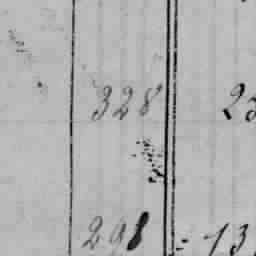 328 23
298 - 13